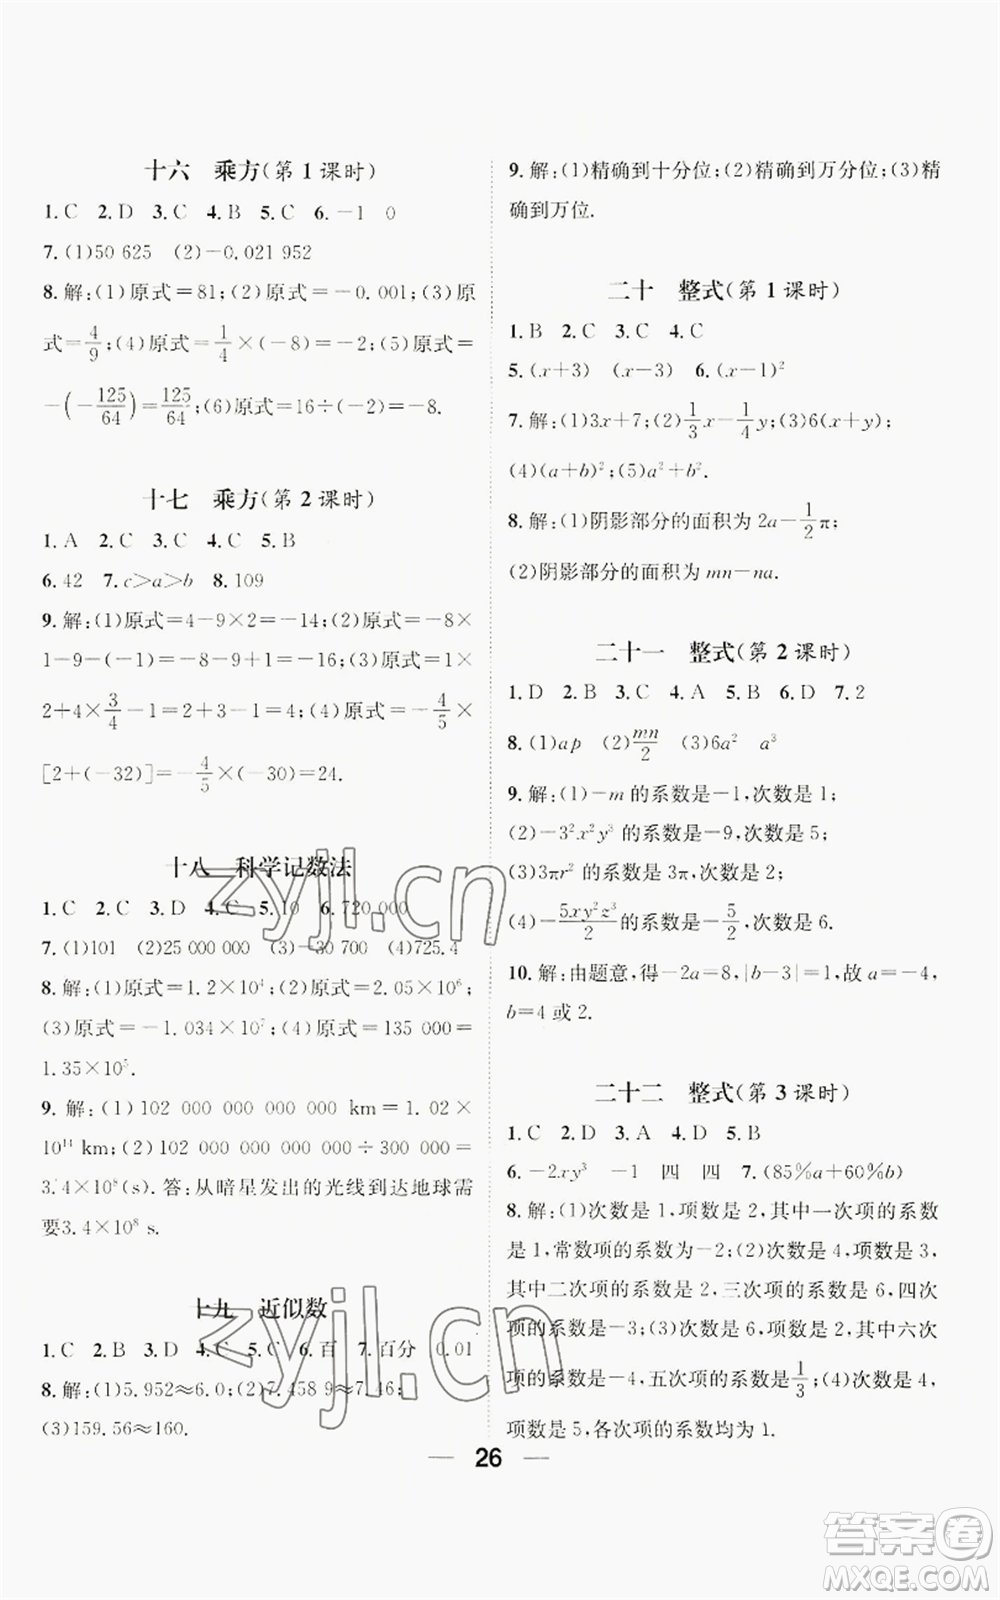 十六　乘方(第1课时)
1.C 2.D 3.C 4.B 5.C 6.－1 0
7.(1)50 625 (2)－0.021 952
8.解:(1)原式＝81;(2)原式＝－0.001;(3)原
式＝4/9;(4)原式＝1/4×(－8)＝－2;(5)原式＝
－(－125/64)＝125/64;(6)原式＝16÷(－2)＝－8.
十七　乘方(第2课时)
1.A 2.C 3.C 4.C 5.B
6.42 7.c>a>b 8.109
9.解:(1)原式＝4－9×2＝－14;(2)原式＝－8×
1－9－(－1)＝－8－9＋1＝－16;(3)原式＝4×
2＋4×3/4－1＝2＋3－1＝4;(4)原式＝－4/5×
[2＋(－32)]＝－4/5×(－30)＝24.
十八　科学记数法
1.C 2.C 3.D 4.C 5.10 6.720 000
7.(1)101 (2)25 000 000 (3)－30 700 (4)725.4
8.解:(1)原式＝1.2×10⁴;(2)原式＝2.05×10⁶;
(3)原式＝－1.034×10⁷;(4)原式＝135 000＝
1.35×10⁵.
9.解:(1)102 000 000 000 000 km＝1.02×
10¹⁴ km;(2)102 000 000 000 000÷300 000＝
3.4×10⁸(s).答:从暗星发出的光线到达地球需
要3.4×10⁸ s.
十九　近似数
1.C 2.B 3.D 4.C 5.C 6.百 7.百分 0.01
8.解:(1)5.952≈6.0;(2)7.458 9≈7.46;
(3)159.56≈160.
9.解:(1)精确到十分位;(2)精确到万分位;(3)精
确到万位.
二十　整式(第1课时)
1.B 2.C 3.C 4.C
5.(x＋3) (x－3) 6.(x－1)²
7.解:(1)3x＋7;(2)1/3x－1/4y;(3)6(x－y);
(4)(a＋b)²;(5)a²＋b².
8.解:(1)阴影部分的面积为2a－1/2π;
(2)阴影部分的面积为mn－na.
二十一　整式(第2课时)
1.D 2.B 3.C 4.A 5.B 6.D 7.2
8.(1)ap (2)mn/2 (3)6a² a³
9.解:(1)－m的系数是－1,次数是1;
(2)－3²x²y³的系数是－9,次数是5;
(3)3πr²的系数是3π,次数是2;
(4)－5xy²z³/2的系数是－5/2,次数是6.
10.解:由题意,得－2a＝8,|b－3|＝1,故a＝－4,
b＝4或2.
二十二　整式(第3课时)
1.C 2.D 3.A 4.D 5.B
6.－2xy³ －1 四 四 7.(85%a＋60%b)
8.解:(1)次数是1,项数是2,其中一次项的系数
是1,常数项的系数为－2;(2)次数是4,项数是3,
其中二次项的系数是2,三次项的系数是6,四次
项的系数是－3;(3)次数是6,项数是2,其中六次
项的系数是－4,五次项的系数是1/3;(4)次数是4,
项数是5,各次项的系数均为1.
26
zyjl.cn
zyjl.cn
答案圈
MXQE.COM